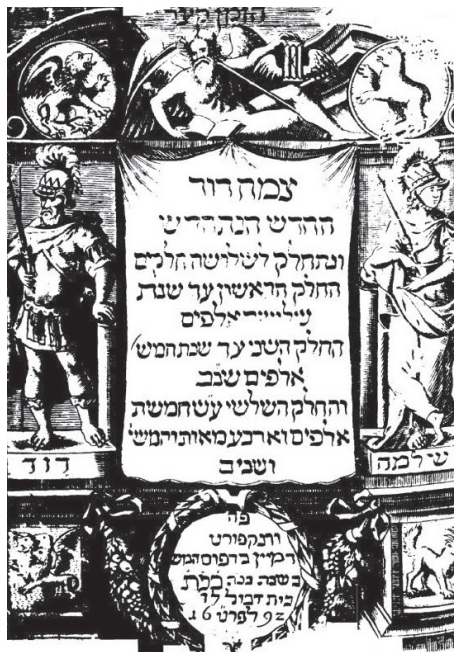 צמח דוד
החדש הנתחדש
ונתחלק לשלישה חלקים
החלק הראשון עד שנת
אלפים
החלק השני עד שנת חמש'
אלפים שנב
והחלק השלשי עש חמשת
אלפים וארבע מאות וחמשי'
דוד
שלמה
פה
ורנקפורט
דמיין בדפוס המש
בשנה
בית
16 לפרט 92